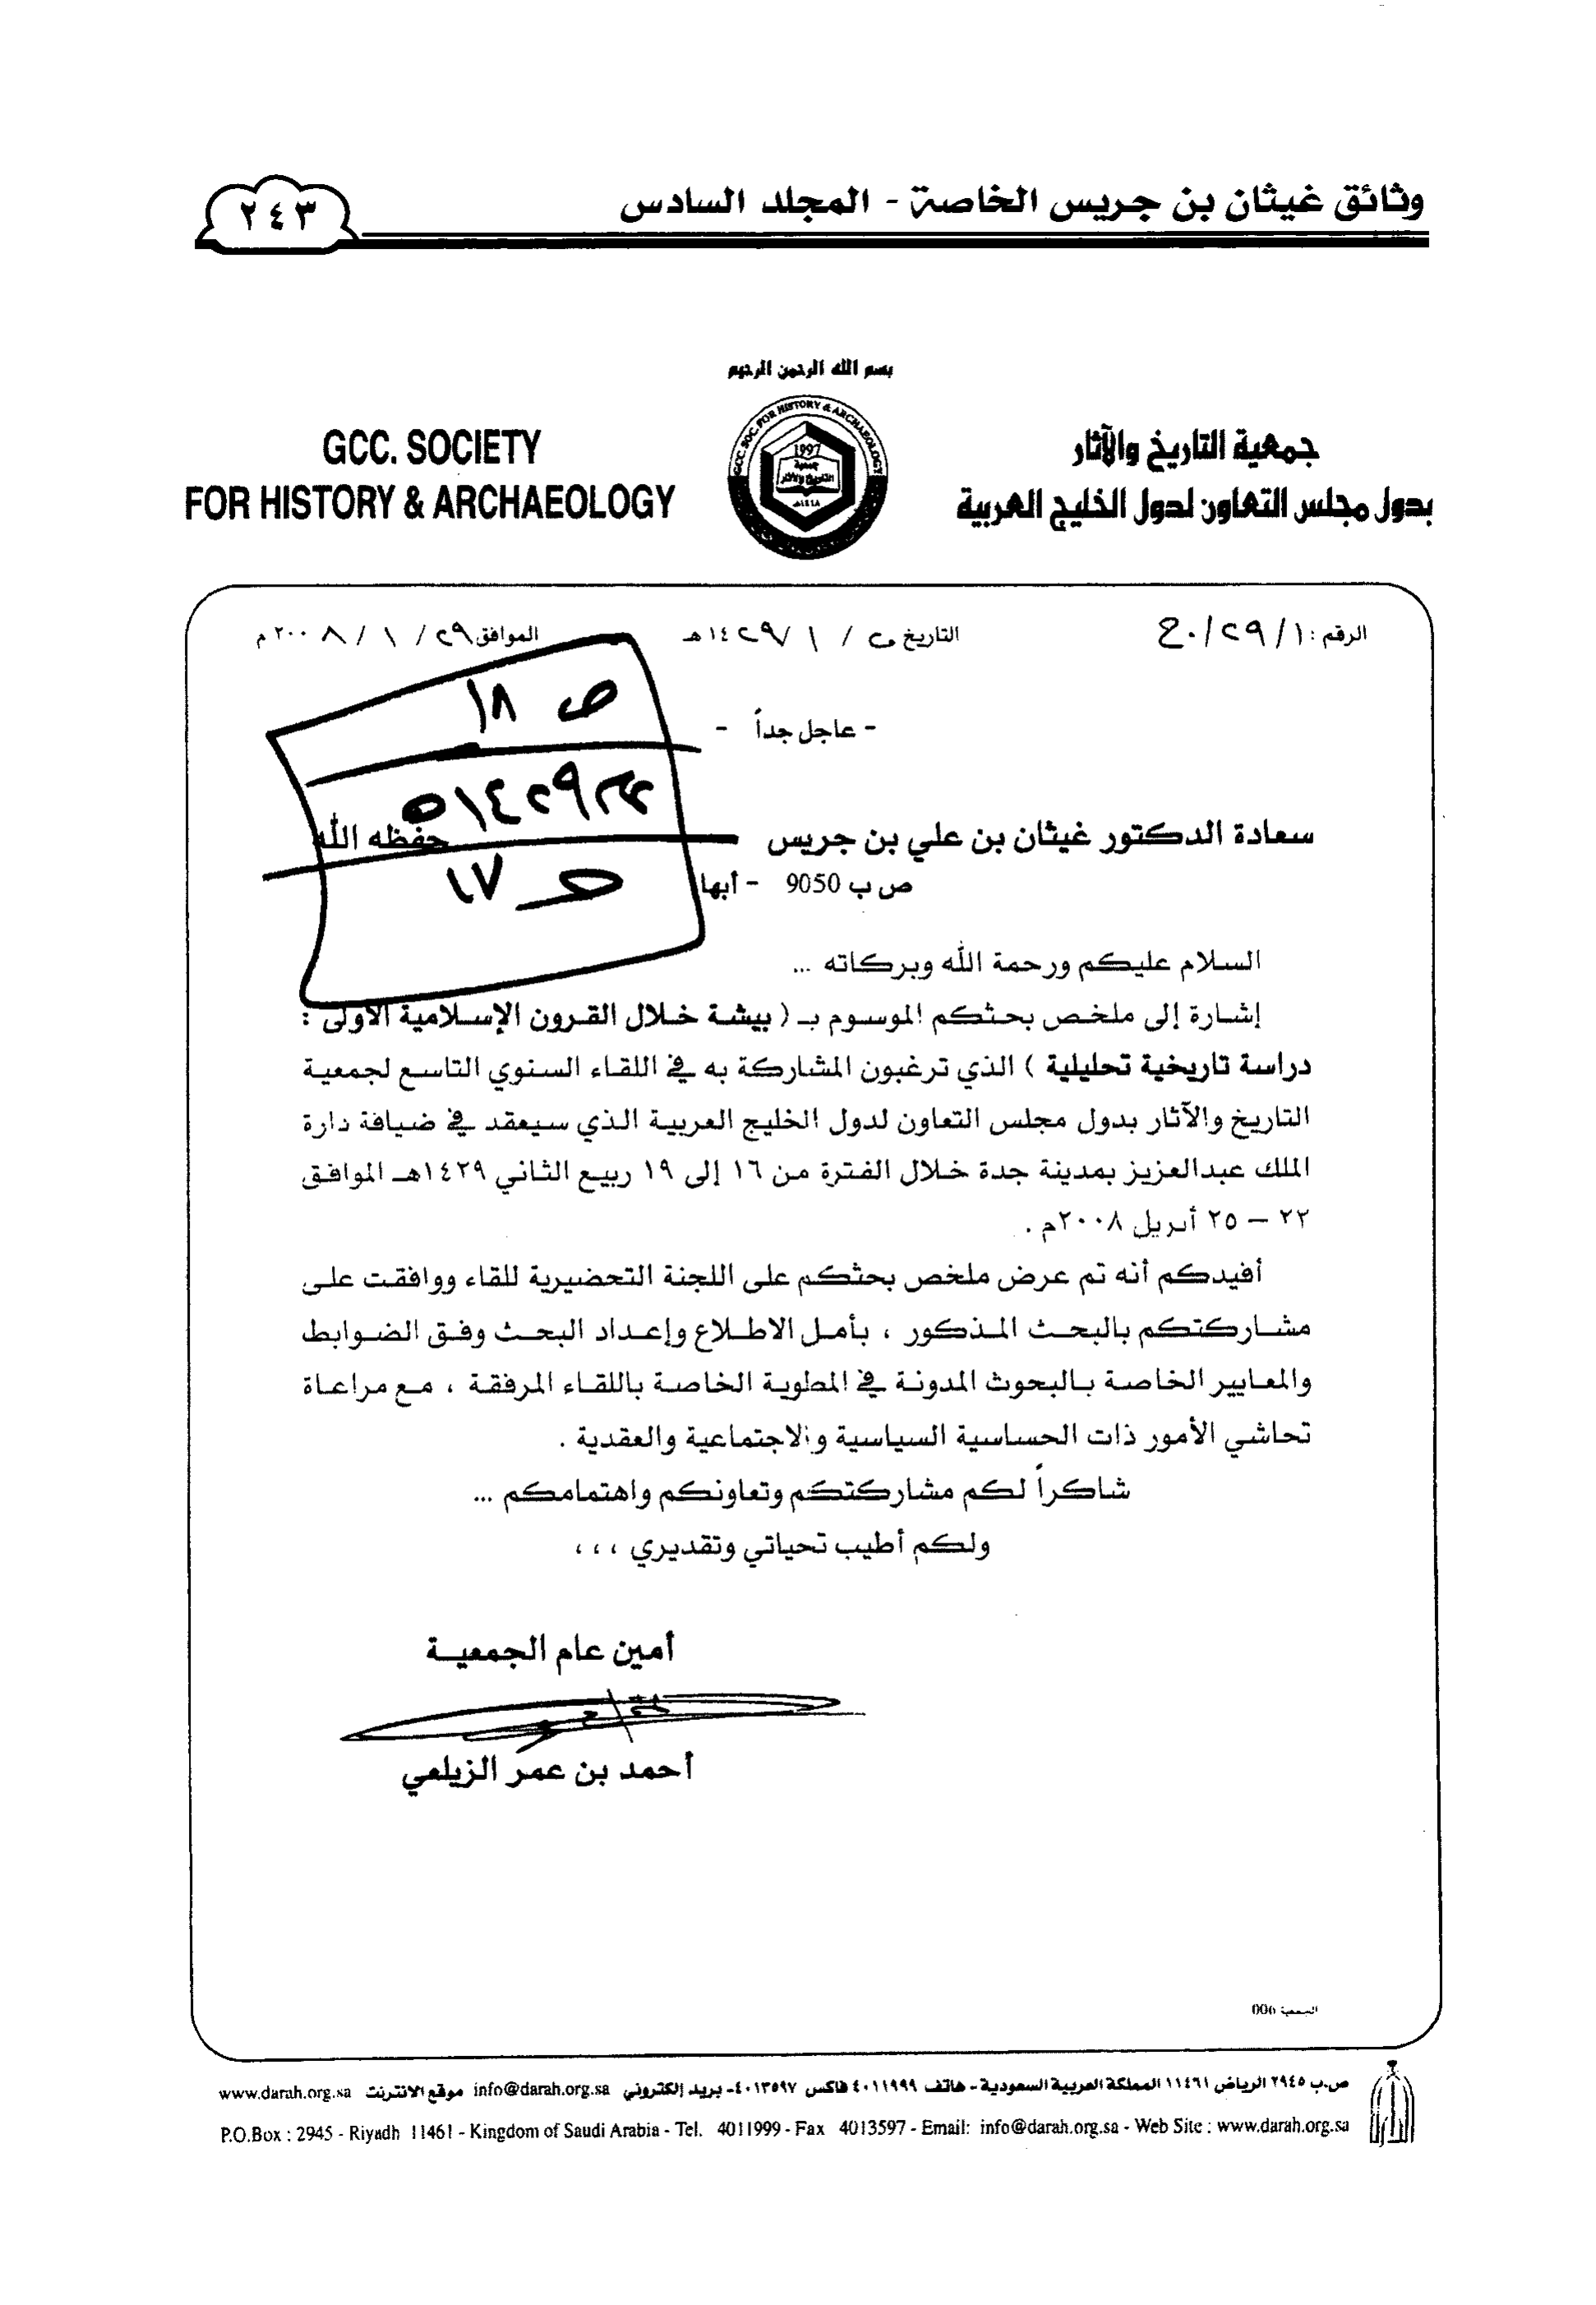 وثائق غيثان بن جريس الخاصة - المجلد السادس
٢٤٣
بسم الله الرحمن الرحيم
جمعية التاريخ والآثار
بدول مجلس التعاون لدول الخليج العربية
GCC. SOC. FOR HISTORY & ARCHAEOLOGY
1997
جمعية
التاريخ والآثار
١٤١٨هـ
GCC. SOCIETY
FOR HISTORY & ARCHAEOLOGY
الرقم : ١/٢٩/٢٠ج
التاريخ / ١ /١٤٢٩هـ
الموافق ٢٩ / ١ / ٢٠٠٨م
- عاجل جداً -
ص ١٨
١٤٢٩
١٧
سعادة الدكتور غيثان بن علي بن جريس حفظه الله
ص ب 9050 - أبها
السلام عليكم ورحمة الله وبركاته ...
إشارة إلى ملخص بحثكم الموسوم بـ ( بيشة خلال القرون الإسلامية الأولى :
دراسة تاريخية تحليلية ) الذي ترغبون المشاركة به في اللقاء السنوي التاسع لجمعية
التاريخ والآثار بدول مجلس التعاون لدول الخليج العربية الذي سيعقد في ضيافة دارة
الملك عبدالعزيز بمدينة جدة خلال الفترة من ١٦ إلى ١٩ ربيع الثاني ١٤٢٩هـ الموافق
٢٢ – ٢٥ أبريل ٢٠٠٨م .
أفيدكم أنه تم عرض ملخص بحثكم على اللجنة التحضيرية للقاء ووافقت على
مشاركتكم بالبحث المذكور ، بأمل الاطلاع وإعداد البحث وفق الضوابط
والمعايير الخاصة بالبحوث المدونة في المطوية الخاصة باللقاء المرفقة ، مع مراعاة
تحاشي الأمور ذات الحساسية السياسية والاجتماعية والعقدية .
شاكراً لكم مشاركتكم وتعاونكم واهتمامكم ...
ولكم أطيب تحياتي وتقديري ، ، ،
أمين عام الجمعية
أحمد بن عمر الزيلعي
الجمعية 006
ص.ب ٢٩٤٥ الرياض ١١٤٦١ المملكة العربية السعودية - هاتف ٤٠١١٩٩٩ فاكس ٤٠١٣٥٩٧- بريد إلكتروني info@darah.org.sa موقع الانترنت www.darah.org.sa
P.O.Box : 2945 - Riyadh 11461 - Kingdom of Saudi Arabia - Tel. 4011999 - Fax 4013597 - Email: info@darah.org.sa - Web Site : www.darah.org.sa